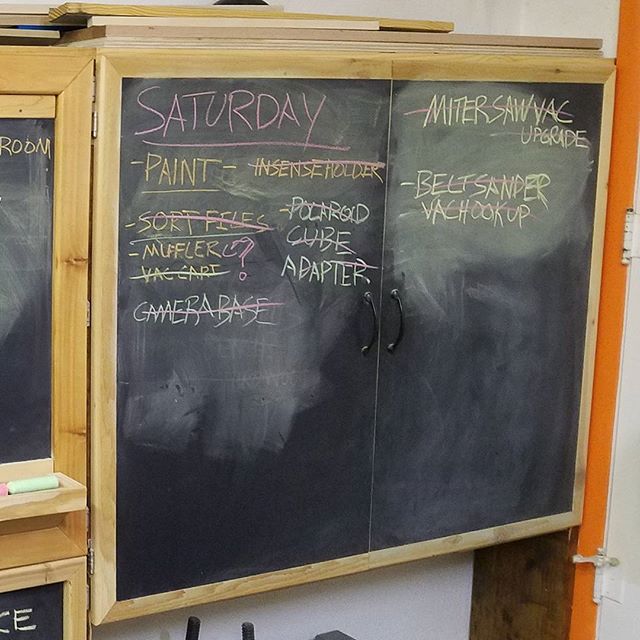 ROOM
SATURDAY
-PAINT-
INSENSE HOLDER
-SORT FILES
-MUFFLER?
VAC CART
CAMERA BASE
-POLAROID
CUBE
ADAPTER
-MITER SAW VAC
UPGRADE
-BELT SANDER
VAC HOOK UP